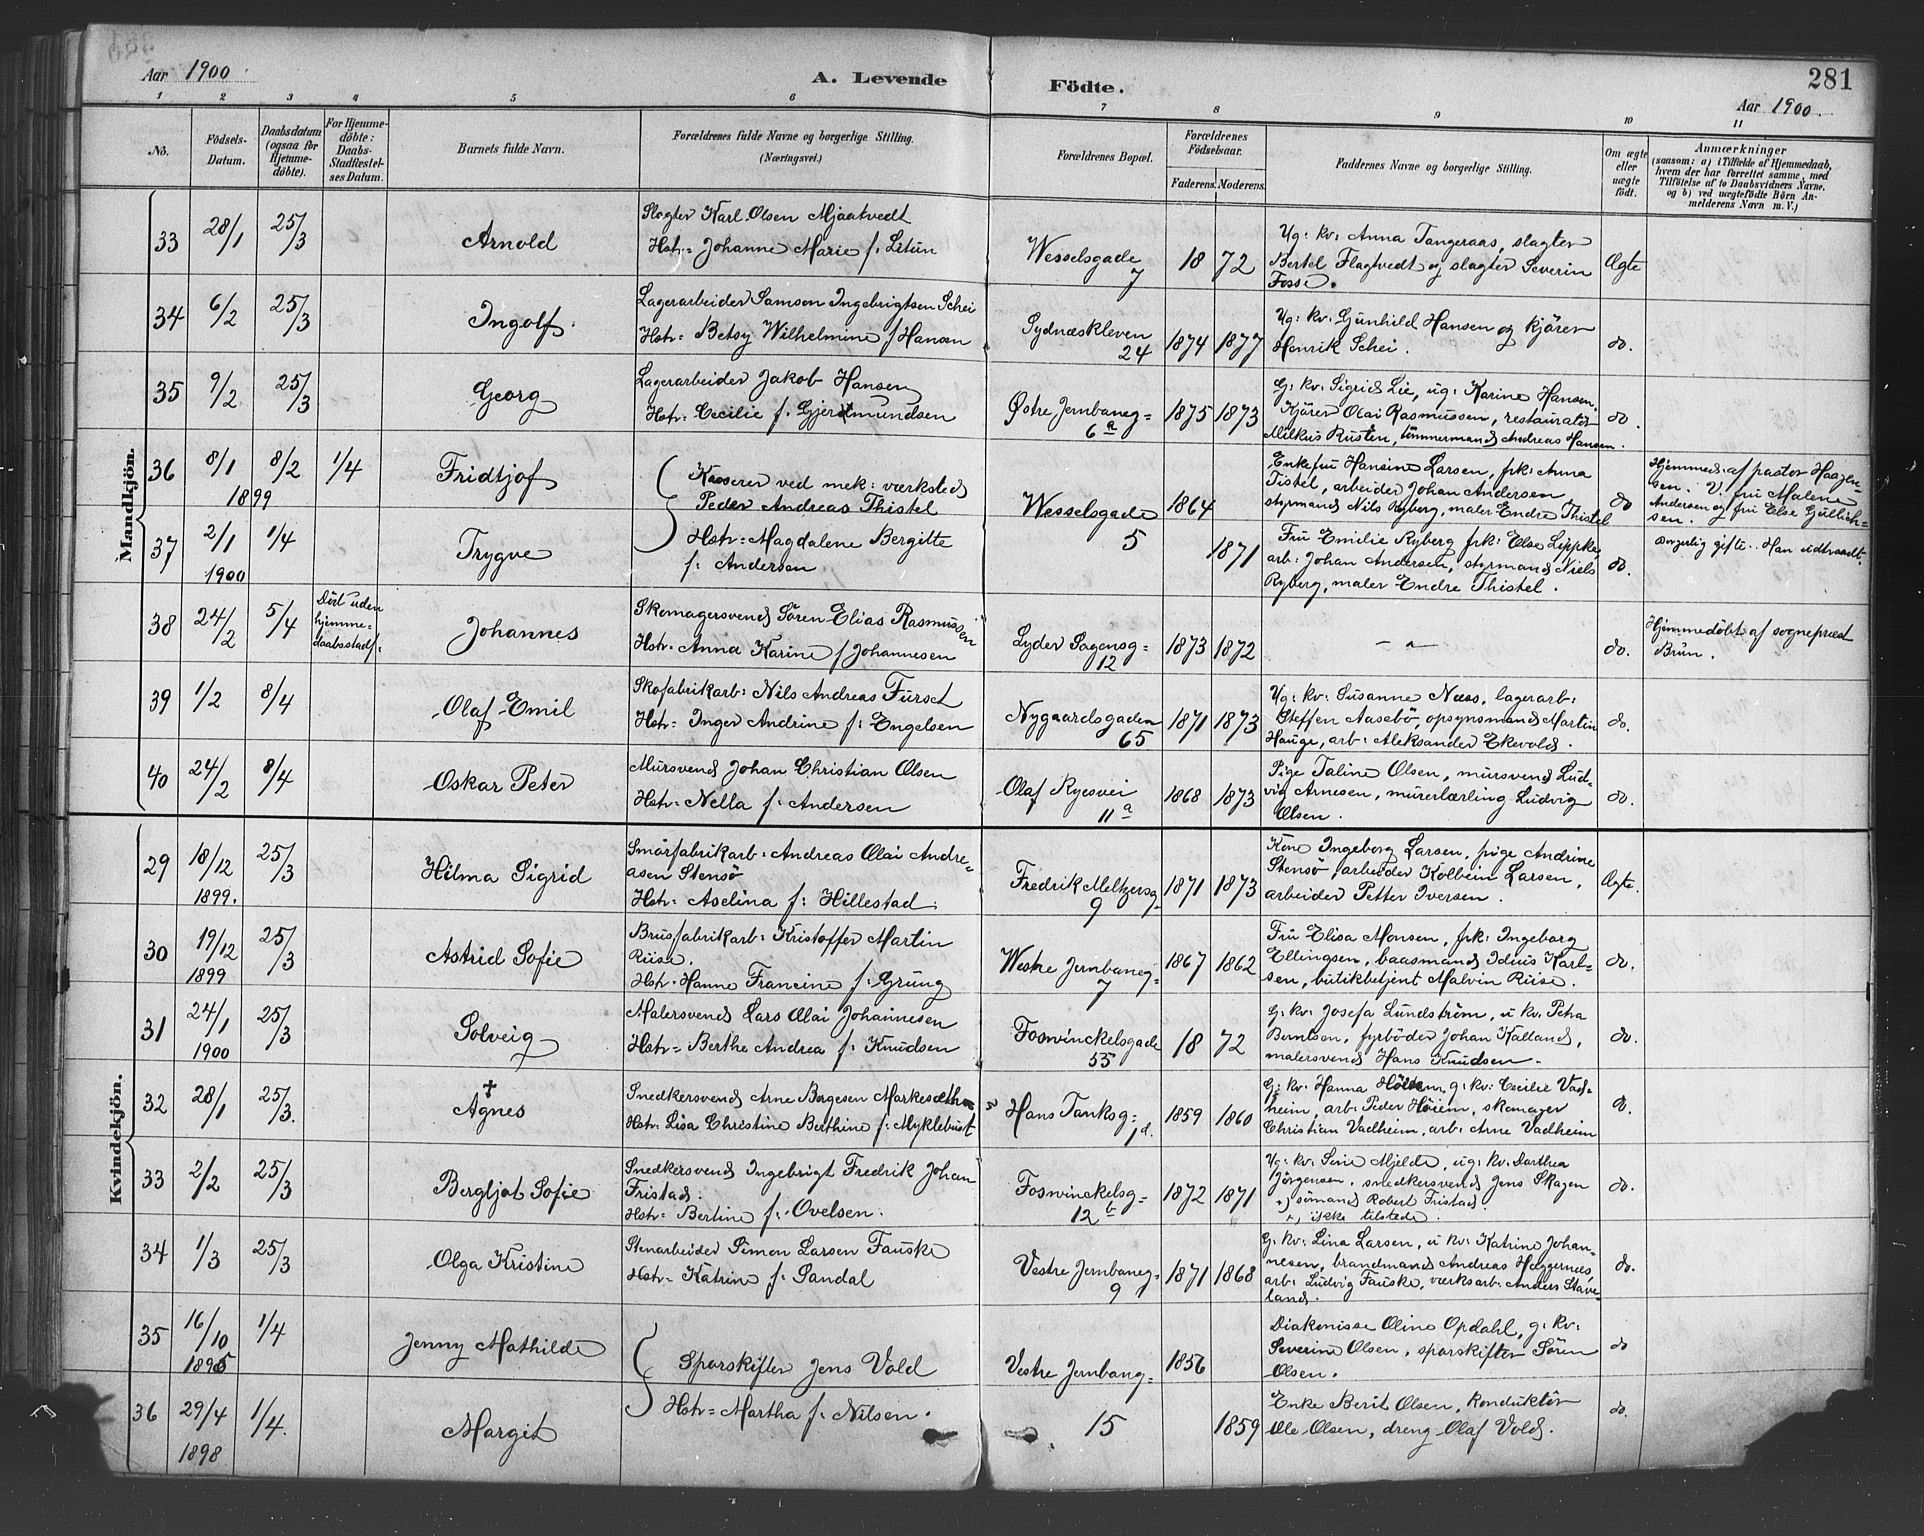 Aar 1900
A. Levende
Födte.
281
Aar 1900.
1 2 3 4 5 6 7 8 9 10 11
No.
Födsels-
Datum.
Daabsdatum
(ogsaa for
Hjemme-
döbte).
For Hjemme-
döbte:
Daabs-
Stadfæstel-
ses Datum.
Barnets fulde Navn.
Forældrenes fulde Navne og borgerlige Stilling.
(Næringsvei.)
Forældrenes Bopæl.
Forældrenes
Födselsaar.
Faderens. Moderens.
Faddernes Navne og borgerlige Stilling.
Om ægte
eller
uægte
födt.
Anmærkninger
(saasom: a) i Tilfælde af Hjemmedaab,
hvem der har forrettet samme, med
Tilföielse af to Daabsvidners Navne,
og b) ved uægtefödte Börn An-
melderens Navn m. V.)
Mandkjön.
33 28/1 25/3 Arnold
Slagter Karl Olsen Mjaatvedt
Hstr: Johanne Marie f. Litun
Wesselsgade
7
18 72
Ug: kv: Anna Tangeraas, slagter
Bertel Flagtvedt og slagter Severin
Fosse.
Ægte
34 6/2 25/3 Ingolf.
Lagerarbeider Samson Ingebrigtsen Schei
Hstr: Betsy Wilhelmine f Hansen
Sydnæskleven
24
1874 1877
Ug: kv: Gunhild Hansen og kjörer
Henrik Schei.
do.
35 9/2 25/3 Georg
Lagerarbeider Jakob Hansen
Hstr: Cecilie f. Gjertmundsen
Østre Jernbaneg=
6a
1875 1873
G: kv: Sigrid Lie, ug: Karine Hansen,
Kjörer Olai Rasmussen, restauratör
Milkus Rusten, tömmermand Andreas Hansen.
do.
36 8/1 8/2 1/4 Fridtjof
1899
Kasserer ved mek: værksted
Peder Andreas Thistel
Hstr: Magdalene Bergitte
f: Andersen
Wesselsgade
5
1864
Enkefru Hansine Larsen, frk: Anna
Tistel, arbeider Johan Andersen
styrmand Nils Ryberg, maler Endre Thistel
do
Hjemmed: af pastor Haagen-
sen. V: fru Malene
Andersen og fru Else Gullich-
sen.
37 2/1 1/4 Trygve
1900
1871
Fru Emilie Ryberg frk: Else Lippke
arb: Johan Andersen, styrmand Niels
Ryberg, maler Endre Thistel.
do.
Borgerlig gifte. Han udtraadt.
38 24/2 5/4
Döde uden
hjemme-
daabsstadf:
Johannes
Skomagersvend Sören Elias Rasmussen
Hstr: Anna Karine f Johannesen
Lyder Sagensg=
12
1873 1872
do.
Hjemmedöbt af sognepræst
Brun.
39 1/2 8/4 Olaf Emil
Skofabrikarb: Nils Andreas Furset
Hstr: Inger Andrine f: Engelsen
Nygaardsgaden
65
1871 1873
Ug: kv: Susanne Næss, lagerarb:
Steffen Aasebö, opsynsmand Martin
Hauge, arb: Aleksander Ekevold.
do.
40 24/2 8/4 Oskar Peter
Mursvend Johan Christian Olsen
Hstr: Nella f: Andersen
Olaf Ryesvei
11a
1868 1873
Pige Taline Olsen, mursvend Lud-
vig Arnesen, murerlærling Ludvig
Olsen.
do.
Kvindekjön.
29 18/12 25/3 Hilma Sigrid
1899.
Smörfabrikarb: Andreas Olai Andre-
asen Stensö
Hstr: Aselina f: Hillestad.
Fredrik Meltzersg.
9
1871 1873
Kone Ingeborg Larsen, pige Andrine
Stensö, arbeider Kolbein Larsen,
arbeider Petter Iversen.
Ægte.
30 19/12 25/3 Astrid Sofie
1899
Brusfabrikarb: Kristoffer Martin
Riise.
Hstr. Hanne Francine f: Grung
Westre Jernbaneg=
7
1867 1862
Fru Elisa Monsen, frk: Ingeborg
Ellingsen, baasmand Idius Karl-
sen, butikbetjent Malvin Riise.
do.
31 24/1 25/3 Solveig
1900
Malersvend Lars Olai Johannesen
Hstr: Berthe Andrea f: Knudsen
Foswinckelsgade
55
18 72
G: kv: Josefa Lundström, u kv: Petra
Berntsen, fyrböder Johan Kalland,
malersvend Hans Knudsen.
do.
32 28/1 25/3. † Agnes
Snedkersvend Arne Børgesen Markesæthre
Hstr: Lisa Christine Berthine f: Myklebust
Hans Tanksg:
1d.
1859 1860
G: kv: Hanna g: kv: Cecilie Vad-
heim, arb: Peder Höiem, skomager
Christian Vadheim, arb: Arne Vadheim
do.
33 2/2 25/3 Bergljot Sofie
Snedkersvend Ingebrigt Fredrik Johan
Fristad.
Hstr: Bertine f: Ovelsen.
Foswinckelsg=
12b
1872 1871
Ug: kv: Sine Mjelde, ug: kv: Dorthea
Jörgensen, snedkersvend Jens Skagen
+) sömand Robert Fristad.
+) ikke tilstede.
do.
34 1/3 25/3 Olga Kristine
Stenarbeider Simon Larsen Fauske
Hstr: Katrine f: Sandal
Vestre Jernbaneg=
9
1871 1868
G: kv: Lina Larsen, u kv: Katrine Johan-
nesen, brandmand Andreas Heggernes,
arb: Ludvig Fauske, værksarb: Anders Stave-
land.
do.
35 16/10 1/4 Jenny Mathilde
1895
Sporskifter Jens Vold
Hstr: Martha f: Nilsen.
Vestre Jernbang=
15
1856
Diakonisse Oline Opdahl, g: kv:
Severine Olsen, sporskifter Sören
Olsen.
do
36 29/4 1/4. Margit
1898
1859
Enke Berit Olsen, konduktör
Ole Olsen, dreng Olaf Vold.
do.